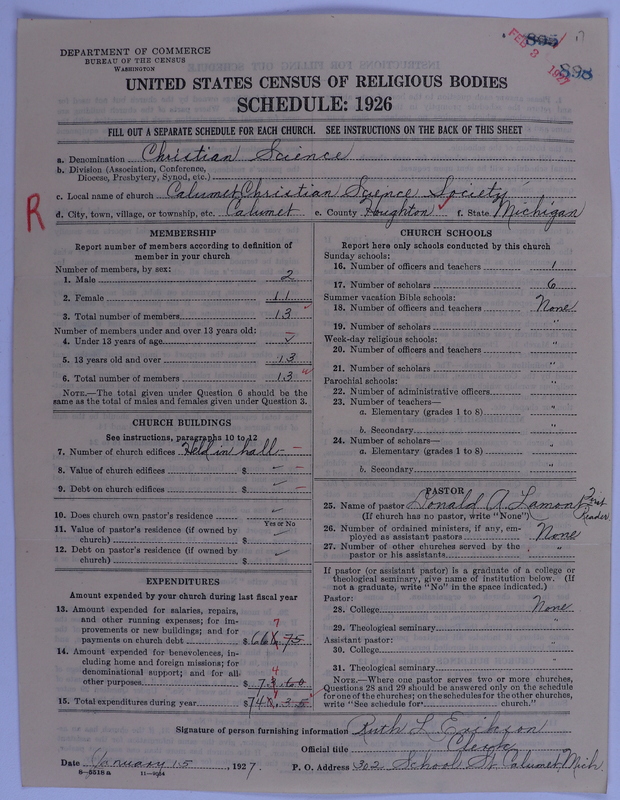 DEPARTMENT OF COMMERCE
BUREAU OF THE CENSUS
WASHINGTON
FEB 3 1927
895
898
UNITED STATES CENSUS OF RELIGIOUS BODIES
SCHEDULE: 1926
FILL OUT A SEPARATE SCHEDULE FOR EACH CHURCH. SEE INSTRUCTIONS ON THE BACK OF THIS SHEET
a. Denomination Christian Science
b. Division (Association, Conference, Diocese, Presbytery, Synod, etc.)
c. Local name of church Calumet Christian Science Society
R
d. City, town, village, or township, etc. Calumet e. County Houghton f. State Michigan
MEMBERSHIP
Report number of members according to definition of
member in your church
Number of members, by sex:
1. Male 2
2. Female 11
3. Total number of members 13
Number of members under and over 13 years old:
4. Under 13 years of age
5. 13 years old and over 13
6. Total number of members 13
NOTE.—The total given under Question 6 should be the
same as the total of males and females given under Question 3.
CHURCH BUILDINGS
See instructions, paragraphs 10 to 12
7. Number of church edifices Held in hall —
8. Value of church edifices $ —
9. Debt on church edifices $ —
10. Does church own pastor's residence
Yes or No
11. Value of pastor's residence (if owned by
church) $
12. Debt on pastor's residence (if owned by
church) $
EXPENDITURES
Amount expended by your church during last fiscal year
13. Amount expended for salaries, repairs,
and other running expenses; for im-
provements or new buildings; and for
payments on church debt $
14. Amount expended for benevolences, in-
cluding home and foreign missions; for
denominational support; and for all
other purposes $
15. Total expenditures during year $
CHURCH SCHOOLS
Report here only schools conducted by this church
Sunday schools:
16. Number of officers and teachers 1
17. Number of scholars 6
Summer vacation Bible schools:
18. Number of officers and teachers None
19. Number of scholars "
Week-day religious schools:
20. Number of officers and teachers "
21. Number of scholars "
Parochial schools:
22. Number of administrative officers "
23. Number of teachers—
a. Elementary (grades 1 to 8) "
b. Secondary "
24. Number of scholars—
a. Elementary (grades 1 to 8) "
b. Secondary "
PASTOR
25. Name of pastor Donald A. Lamont First Reader
(If church has no pastor, write "None")
26. Number of ordained ministers, if any, em-
ployed as assistant pastors None
27. Number of other churches served by the
pastor or his assistants "
If pastor (or assistant pastor) is a graduate of a college or
theological seminary, give name of institution below. (If
not a graduate, write "No" in the space indicated.)
Pastor:
28. College None
29. Theological seminary "
Assistant pastor:
30. College "
31. Theological seminary "
NOTE.—Where one pastor serves two or more churches,
Questions 28 and 29 should be answered only on the schedule
for one of the churches; on the schedules for the other churches,
write "See schedule for church."
Signature of person furnishing information Ruth L Erikson
Official title Clerk
Date January 15, 1927. P. O. Address 302 School St Calumet, Mich
8—5518 a 11—9364